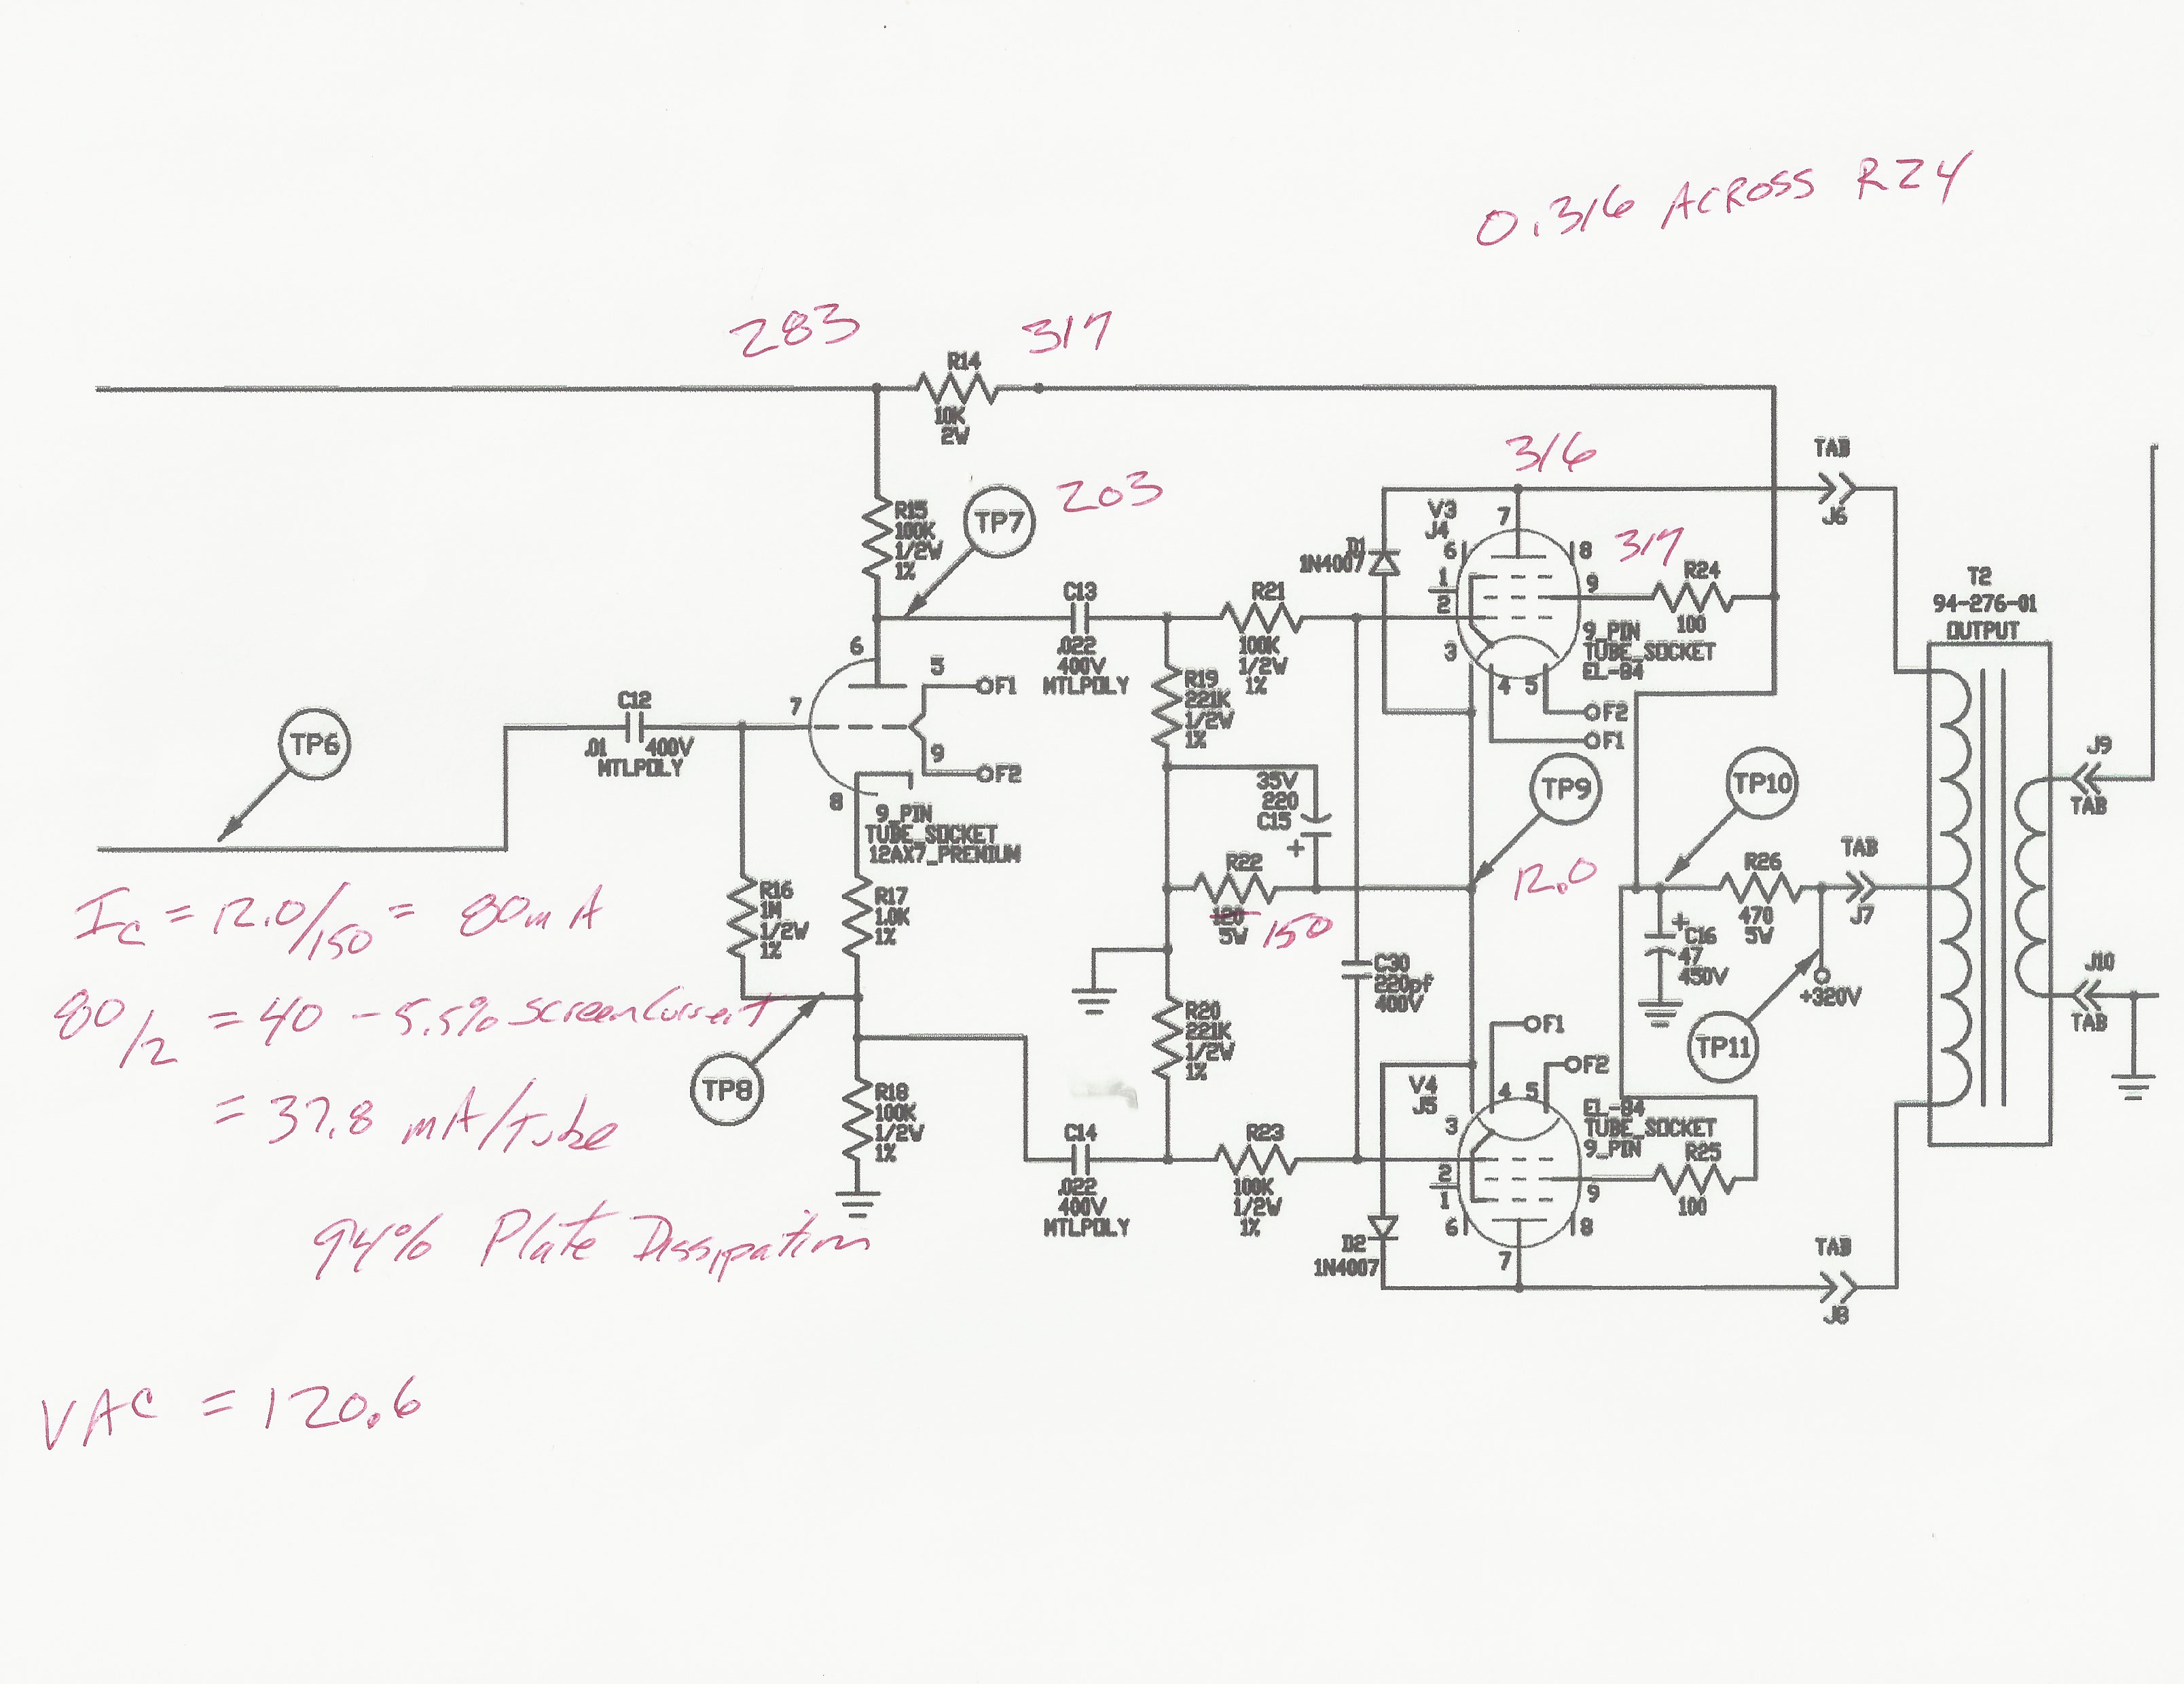 0.316 ACROSS R24
283
317
R14
10K
2W
316
TAB
J6
203
TP7
R15
100K
1/2W
1%
V3
J4
7
6
8
1
2
9
3
4
5
D1
1N4007
317
R24
100
9_PIN
TUBE_SOCKET
EL-84
F2
F1
T2
94-276-01
OUTPUT
C13
.022
400V
MTLPOLY
R21
100K
1/2W
1%
6
5
F1
7
9
F2
8
9_PIN
TUBE_SOCKET
12AX7_PREMIUM
C12
.01 400V
MTLPOLY
TP6
R19
221K
1/2W
1%
35V
220
C15
+
TP9
TP10
J9
TAB
R22
120
5W
150
12.0
R26
470
5W
TAB
J7
+
C16
47
450V
+320V
TP11
J10
TAB
R16
1M
1/2W
1%
R17
1.0K
1%
C30
220pf
400V
Ic = 12.0/150 = 80mA
80/2 = 40 - 5.5% Screen Current
= 37.8 mA/Tube
94% Plate Dissipation
TP8
R18
100K
1/2W
1%
R20
221K
1/2W
1%
C14
.022
400V
MTLPOLY
R23
100K
1/2W
1%
F1
F2
V4
J5
4
5
3
2
1
6
9
8
7
EL-84
TUBE_SOCKET
9_PIN
R25
100
D2
1N4007
TAB
J8
VAC = 120.6